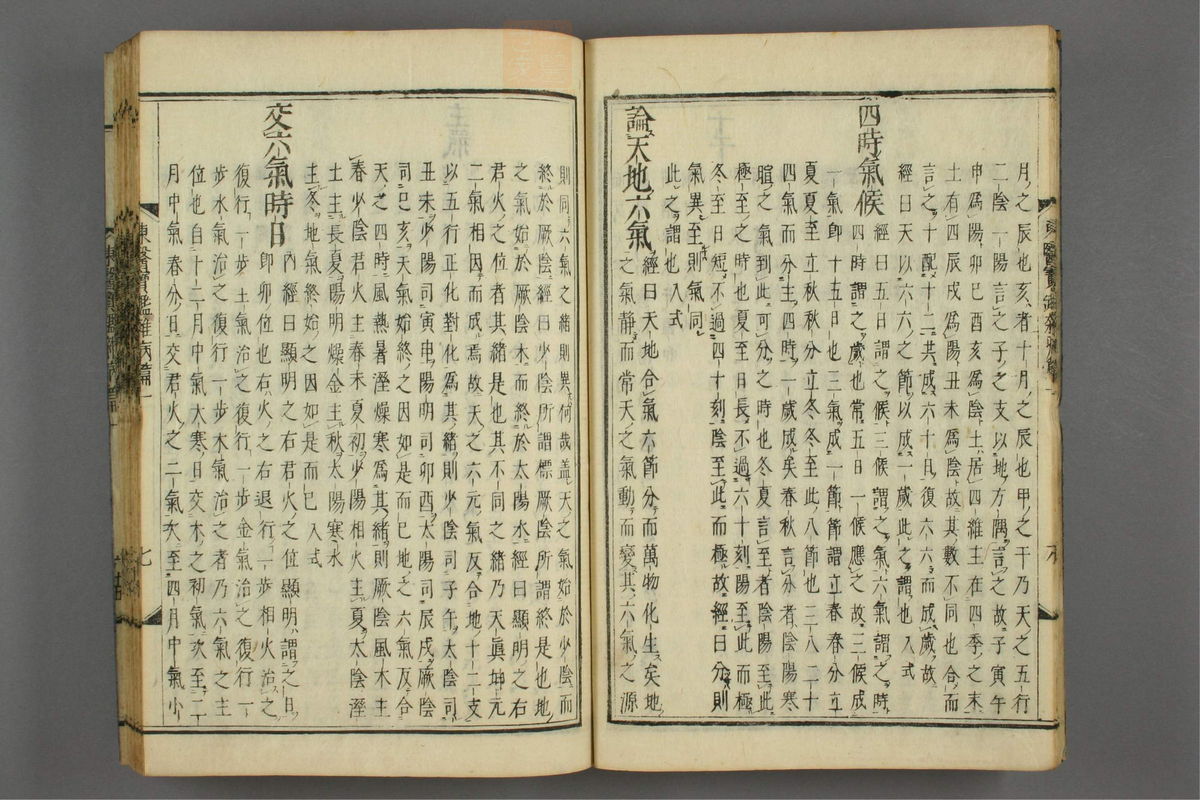 月之辰也亥者十月之辰也甲之干乃天之五行
二陰一陽言之子之支以地方隅言之故子寅午
申爲陽卯巳酉亥爲陰土居四維主在四季之末
土有四辰戌爲陽丑未爲陰故其數不同也合而
言之十配十二共成六十日復六六而成歲故
經曰天以六六之節以成一歲此之謂也入式
四時氣候
經曰五日謂之候三候謂之氣六氣謂之時
四時謂之歲也常五日一候應之故三候成
一氣卽十五日也三氣成一節節謂立春春分立
夏夏至立秋秋分立冬冬至此八節也三八二十
四氣而分主四時一歲成矣春秋言分者陰陽寒
暄之氣到此可分之時也冬夏言至者陰陽至此
極至之時也夏至日長不過六十刻陽至此而極
冬至日短不過四十刻陰至此而極故經曰分則
氣異至則氣同
此之謂也入式
論天地六氣
經曰天地合氣六節分而萬物化生矣地
之氣靜而常天之氣動而變其六氣之源
則同六氣之緒則異何哉盖天之氣始於少陰而
終於厥陰經曰少陰所謂標厥陰所謂終是也地
之氣始於厥陰木而終於太陽水經曰顯明之右
君火之位者其緒是也其不同之緒乃天眞坤元
二氣相因而成焉故天之六元氣反合地十二支
以五行正化對化爲其緒則少陰司子午太陰司
丑未少陽司寅申陽明司卯酉太陽司辰戌厥陰
司巳亥天氣始終之因如是而已地之六氣反合
天之四時風熱暑溼燥寒爲其緒則厥陰風木主
春少陰君火主春末夏初少陽相火主夏太陰溼
土主長夏陽明燥金主秋太陽寒水
主冬地氣終始之因如是而已入式
交六氣時日
內經曰顯明之右君火之位顯明謂之日
卽卯位也右火之右退行一步相火治之
復行一步土氣治之復行一步金氣治之復行一
步水氣治之復行一步木氣治之者乃六氣之主
位也自十二月中氣大寒日交木之初氣次至二
月中氣春分日交君火之二氣次至四月中氣小
東醫寶鑑雜病篇一
七